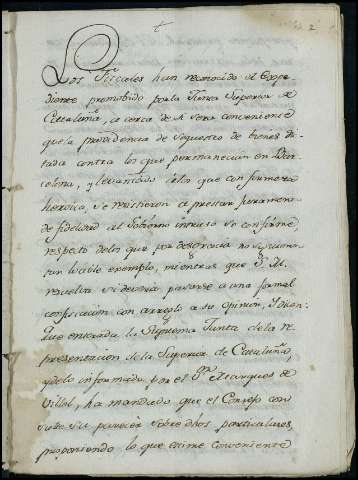 2
Los Fiscales han reconocido el Expe-
diente promobido por la Junta Superior de
Cataluña, a cerca de si sera conveniente
que la providencia de sequestro de bienes dic-
tada contra los que permanecian en Bar-
celona, y levantado a los que con firmeza
heroica, se resistieron a prestar juramento
de fidelidad al Gobierno intruso se confirme,
respecto de los que por desgracia no siguieron
tan loable exemplo, mientras que S. M.
resuelva si deveria pasarse a una formal
confiscacion con arreglo a su opinion, y dicen:
Que enterada la Suprema Junta de la re-
presentacion de la Superior de Cataluña,
y de lo informado por el Marques de
Villel, ha mandado que el Consejo con-
sulte su parecer sobre dhos particulares,
proponiendo lo que estime conveniente